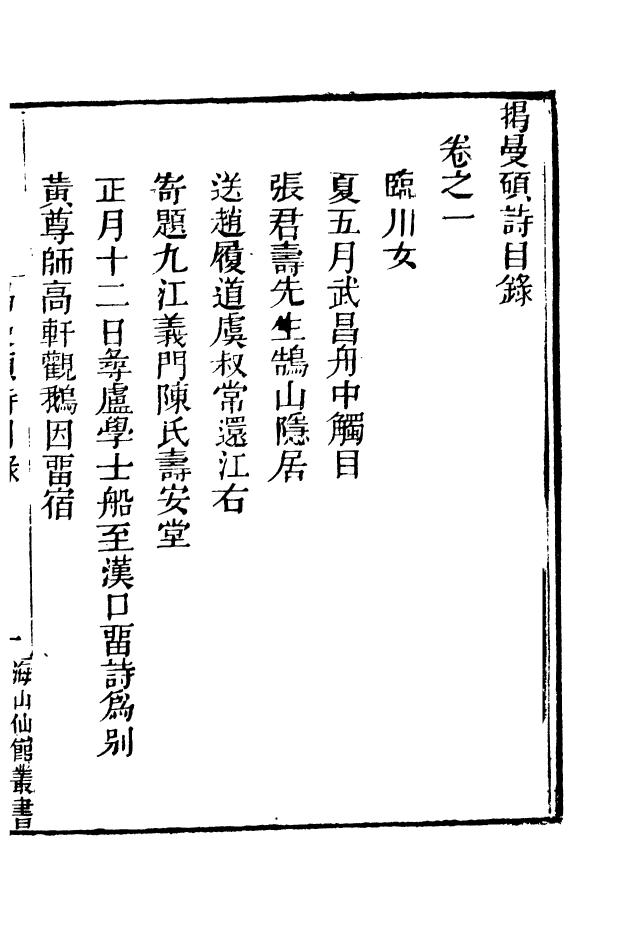 揭曼碩詩目錄
卷之一
臨川女
夏五月武昌舟中觸目
張君壽先生鵠山隱居
送趙履道虞叔常還江右
寄題九江義門陳氏壽安堂
正月十二日尋盧學士船至漢口畱詩爲别
黃尊師高軒觀鵝因畱宿
一
海山仙館叢書